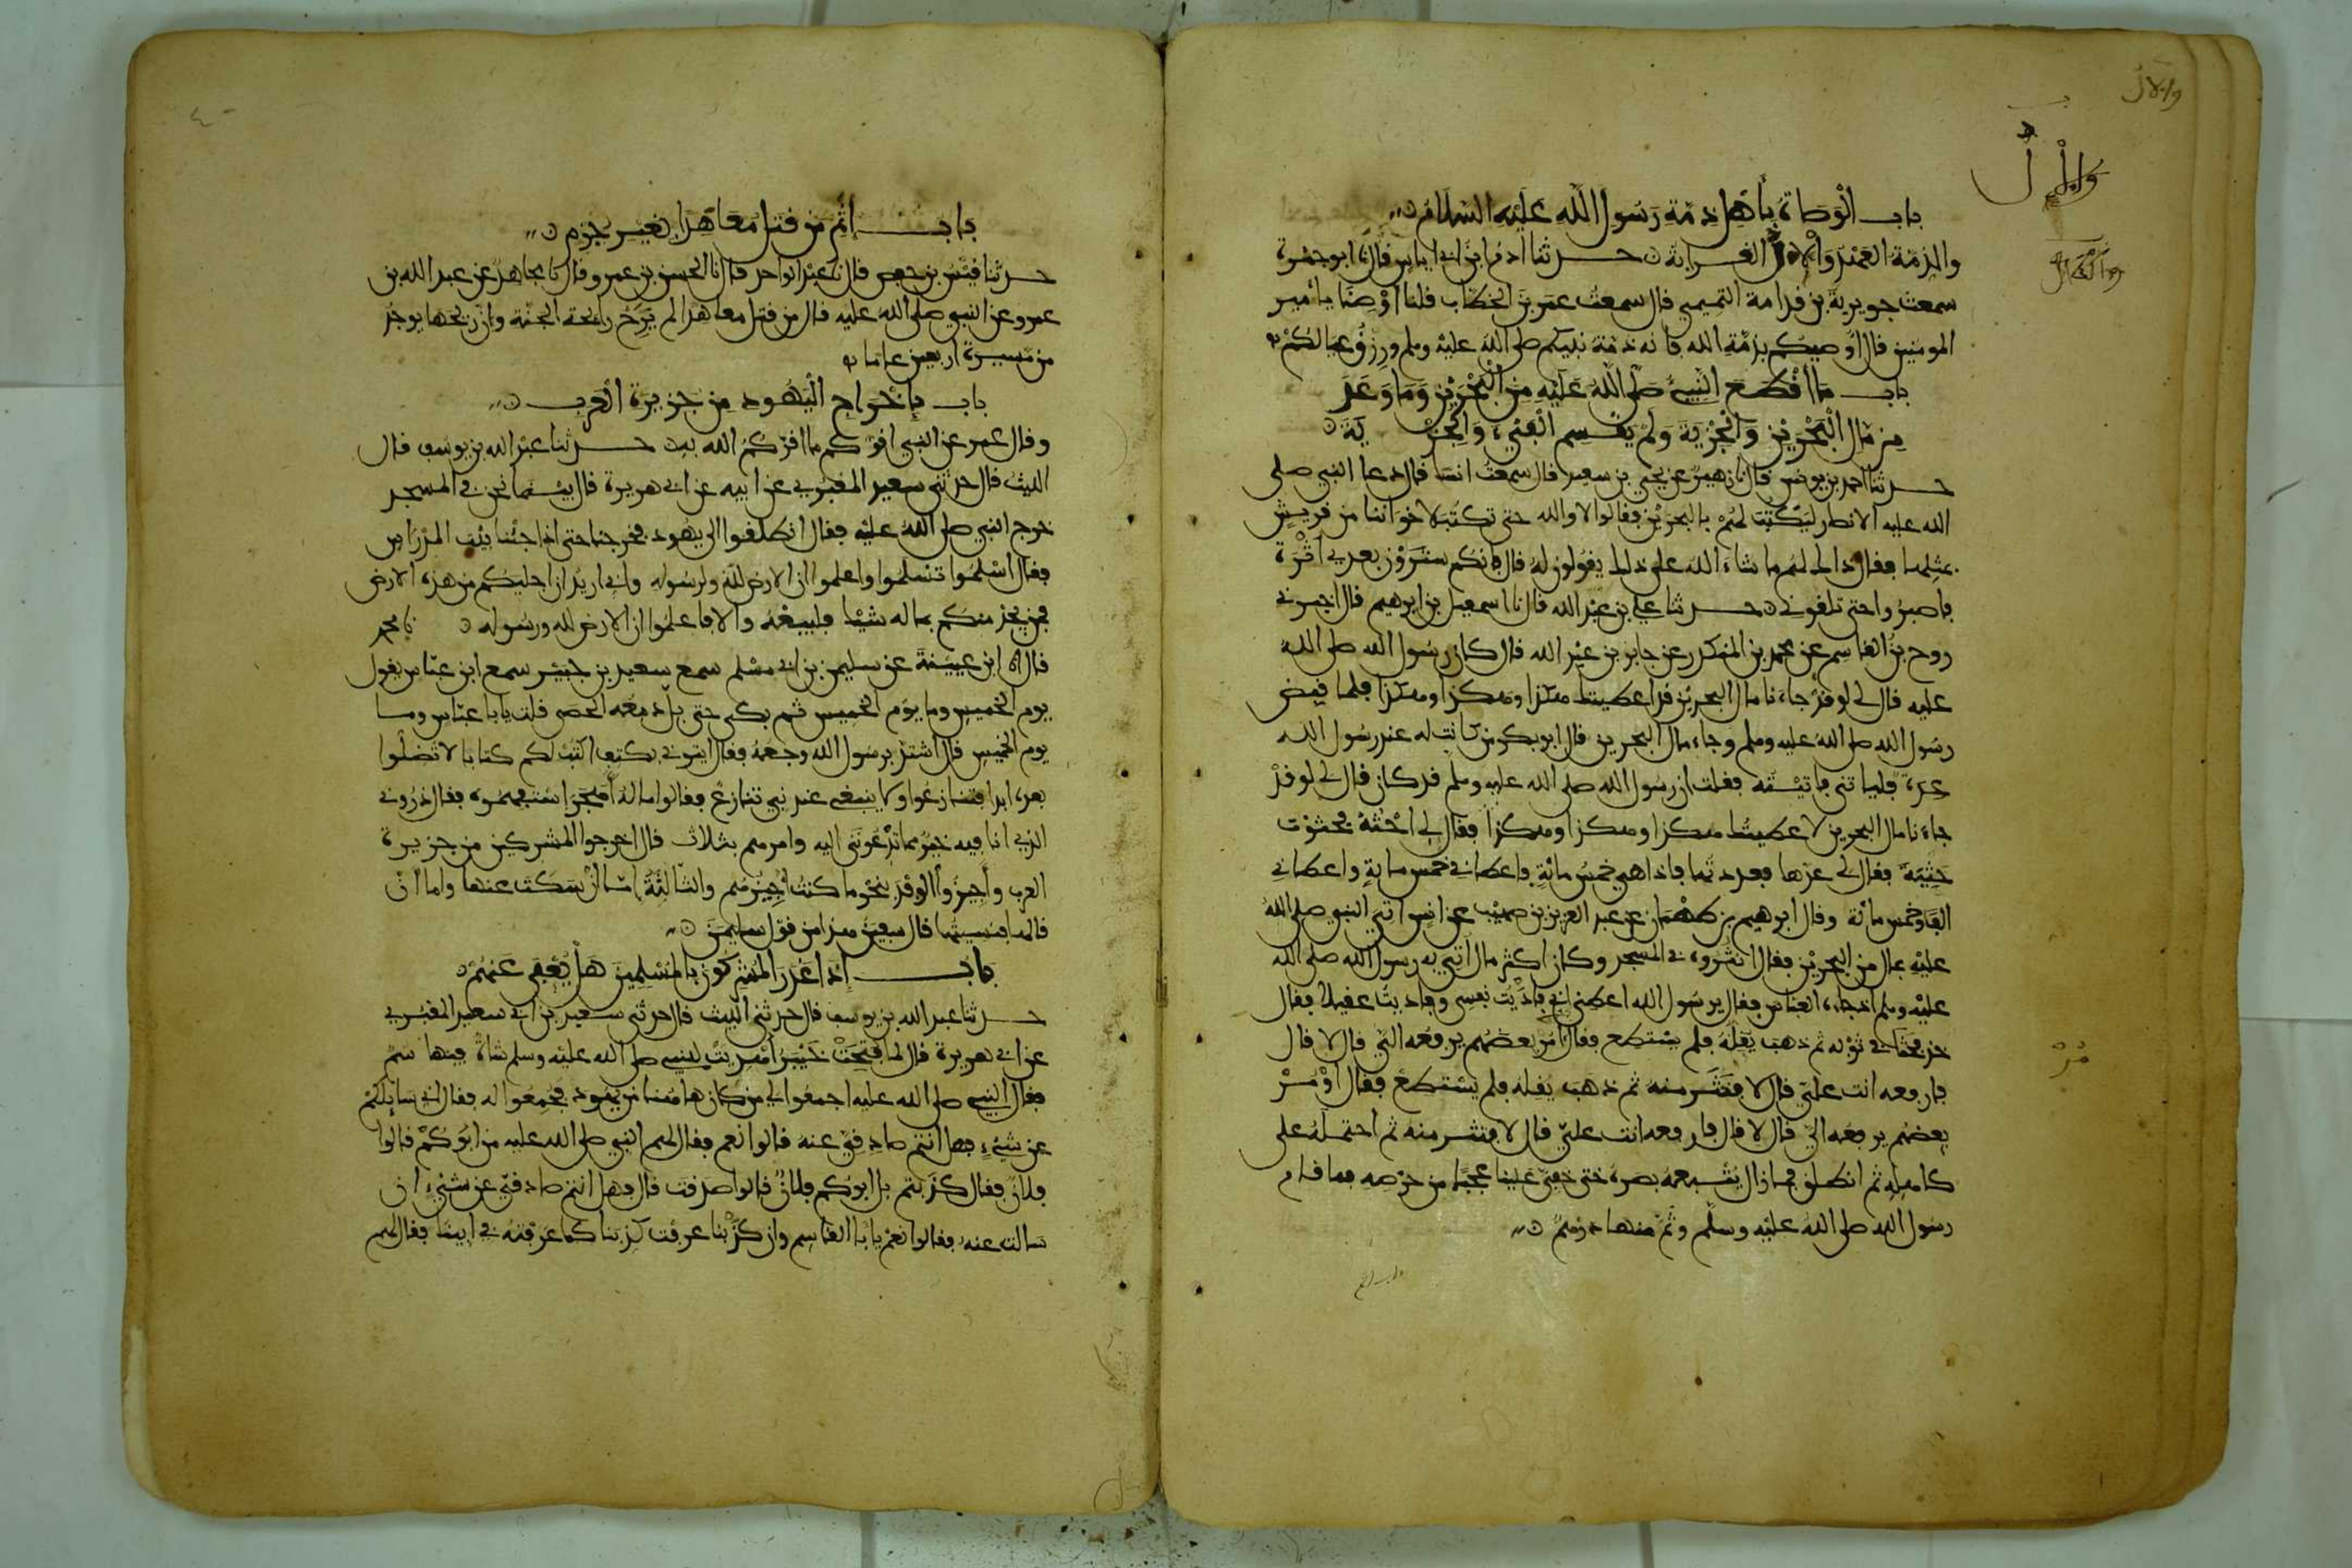 والال
والْإلُّ
والقرابة
باب الوَصَاة بِأَهْلِ ذمّة رَسُول اللّه عَلَيْه السّلامُ
والذمّة العَهْدُ وَالْإِلُّ القرابة حدثنا ادمُ ابن ابي اياس قال نا ابو جمْرة
سمعت جويرية بن قدامة التميمي قال سمعتُ عمر بن الخطّاب قلنا اوْصِنَا يا أمير
المومنين قال اوصيكم بذمّة الله فانه ذمّة نبيكم صلى الله عليْه وسلم ورزق عيالكُمْ
باب مَا أقْطَعَ النّبيءُ صَلّى اللّه عَلَيْه مِنَ الْبَحْرَيْن وَمَا وَعَدَ
مِن مّال الْبَحْرَيْن وَالْجِزْيَة وَلِمَنْ يقْسم الْفَيْء وَالْجِزْيَة
حدثنا احمد بن يونس قال نا زهيرٌ عن يحيى بن سعيد قال سمعتُ انسا قال دعا النبي صلى
الله عليه الانصار ليَكْتُبَ لهُمْ بالبحرَيْن فقالوا لا والله حتى تكتبَ لاخواننا من قريشٍ
بمثلها فقال ذاك لهم ما شاء الله على ذلك يقولون له قال فإنكم ستَرَوْن بعدي أثْرة
فاصبرُوا حتى تلقوني حدثنا علي بن عبْد الله قال نا اسمعيل بن ابرهيم قال اخبرني
روح بن القاسم عن محمد بن المنكدر عن جابر بن عبْد الله قال كان رسُول الله صلى الله
عليه قال لي لو قدْ جاءنا مال البحرين قد اعطيتك هكذا وهكذا وهكذا فلما قبض
رسُول الله صلى الله عليه وسلم وجاء مال البحرين قال ابو بكر من كانت له عند رسُول الله
عدة فلياتني فاتيْته فقلت ان رسُول الله صلى الله عليه وسلم قد كان قال لي لو قدْ
جاءنا مال البحرين لاعطيتك هكذا وهكذا وهكذا فقال لي احْثه فحثوْت
حَثْيَةً فقال لي عدّها فعددتها فاذا هي خمسُ مائةٍ فاعطاني خمس مايةٍ واعطاني
الفا وخمس مائة وقال ابرهيم بن طهْمان عن عبد العزيز بن صهيْب عن انس اتي النبي صلى الله
عليْه بمال من البحريْن فقال انثروه في المسجد وكان اكثر مال اتي به رسول الله صلى الله
عليْه وسلم اذ جاءه العباس فقال يرسُول الله اعطني اني فاديْت نفسِي وفاديتُ عقيلاً فقال
خذ فحثَا في ثوْبه ثم ذهبَ يُقِلّهُ فلم يسْتطع فقال اُمُرْ بعضَهُم يرفعه الَيّ قال لا قال
مُرْ
فارفعه انت عليّ قال لا فنَثَر منه ثم ذهبَ يقله فلم يسْتطعْ فقال أوْمُرْ
بعضهُم يرفعه اليّ قال لا قال فارفعه انت عليّ قال لا فنثر منه ثم احتملهُ على
كاهله ثم انطلق فما زال يتْبعه بصره حتى خفي علينا عجبًا من حرْصه فما قام
رسُول الله صلى الله عليْه وسلّم وثَمّ منها درْهمٌ
باب إثْم مَن قتل مُعَاهَدا بِغَيْر جُرْم
حدثنا قَيْسُ بن حفص قال نا عبْد الواحد قال نا الحسن بن عمرو قال نا مجاهدٌ عن عبد الله بن
عمرو عن النبي صلى الله عليه قال من قتل معاهدًا لم يَرَحْ رائحة الجنّة وان ريحها يوجدُ
من مّسيرة اربعين عاما
باب إِخْرَاج الْيَهُود مِن جَزيرَة الْعَرَب
وقال عمر عن النبي اُقرّكم ما اقرّكُم الله به حدثنا عبْد الله بن يوسف قال
الليث قال حدثني سعيد المقبُري عن ابيه عن ابي هريرة قال بيْنما نحن في المسجد
خرج النبي صلى اللهُ عليْه فقال انطلقوا الى يهود فخرجنا حتى اذا جئْنا بيْت المدْرَاس
فقال أسْلمُوا تسْلمُوا واعلموا ان الارض للّه ولرسُوله واني اريدُ ان اجليكم من هذه الارض
فمن يجدْ منكم بماله شيْئا فليبعْهُ والا فاعلمُوا ان الارض لله ورسُوله نا محمد
قال نا ابن عيينةَ عن سليمن بن ابي مسْلم سمع سعيد بن جبيْر سمع ابن عباس يقول
يوم الخميس وما يوْم الخميس ثم بكى حتى بلّ دمْعُه الحصى قلت يابا عبّاس وما
يوم الخميس قال اشتدّ برسُول الله وجعهُ فقال ايتوني بكتف اكتبْ لكم كتابا لا تضلّوا
بعده ابدا فتنازعُوا ولا ينبغي عند نبي تنازعٌ فقالوا ماله أهَجَر اسْتفهمُوه فقال ذرُوني
الذي انا فيه خيرٌ مما تدْعُونَني اليه وامرهم بثلاث قال اخرجوا المشركين من جزيرة
العرب وأجِيزُوا الْوفْدَ بنحْو ما كنتُ أُجِيزُهُم والثّالِثةُ امّا انْ سَكَتَ عنها واما انْ
قالها فنسيتُها قال سفين هذا من قوْل سليمَنَ
باب إِذا غَدَرَ المُشْرِكُون بالمُسْلِمِينَ هَلْ يُعْفى عَنهُمْ
حدثنا عبد الله بن يوسف قال حدثني الليث قال حدثني سعيد بن ابي سعيد المقبري
عن ابي هريرة قال لما فُتِحَتْ خَيْبَر أُهْدِيتْ للنبيءِ صلى الله عليْه وسلم شاةٌ فيها سَمّ
فقال النبيءُ صلى الله عليه اجمعُوا لي من كان هاهُنا من يهود فجُمعُوا له فقال اني سائلكمْ
عن شيْءٍ فهل انتم صادقيّ عنه قالوا نعم فقال لهم النبي صلى الله عليه من ابُوكُمْ قالوا
فلانٌ فقال كذبتم بل ابوكم فلانٌ قالوا صدقت قال فهل انتم صادقيّ عن شيْء ان
سالت عنه فقالوا نعمْ يابا القاسم وان كذَبْنا عرفت كذبنا كما عرفتهُ في ابينا فقال لهم